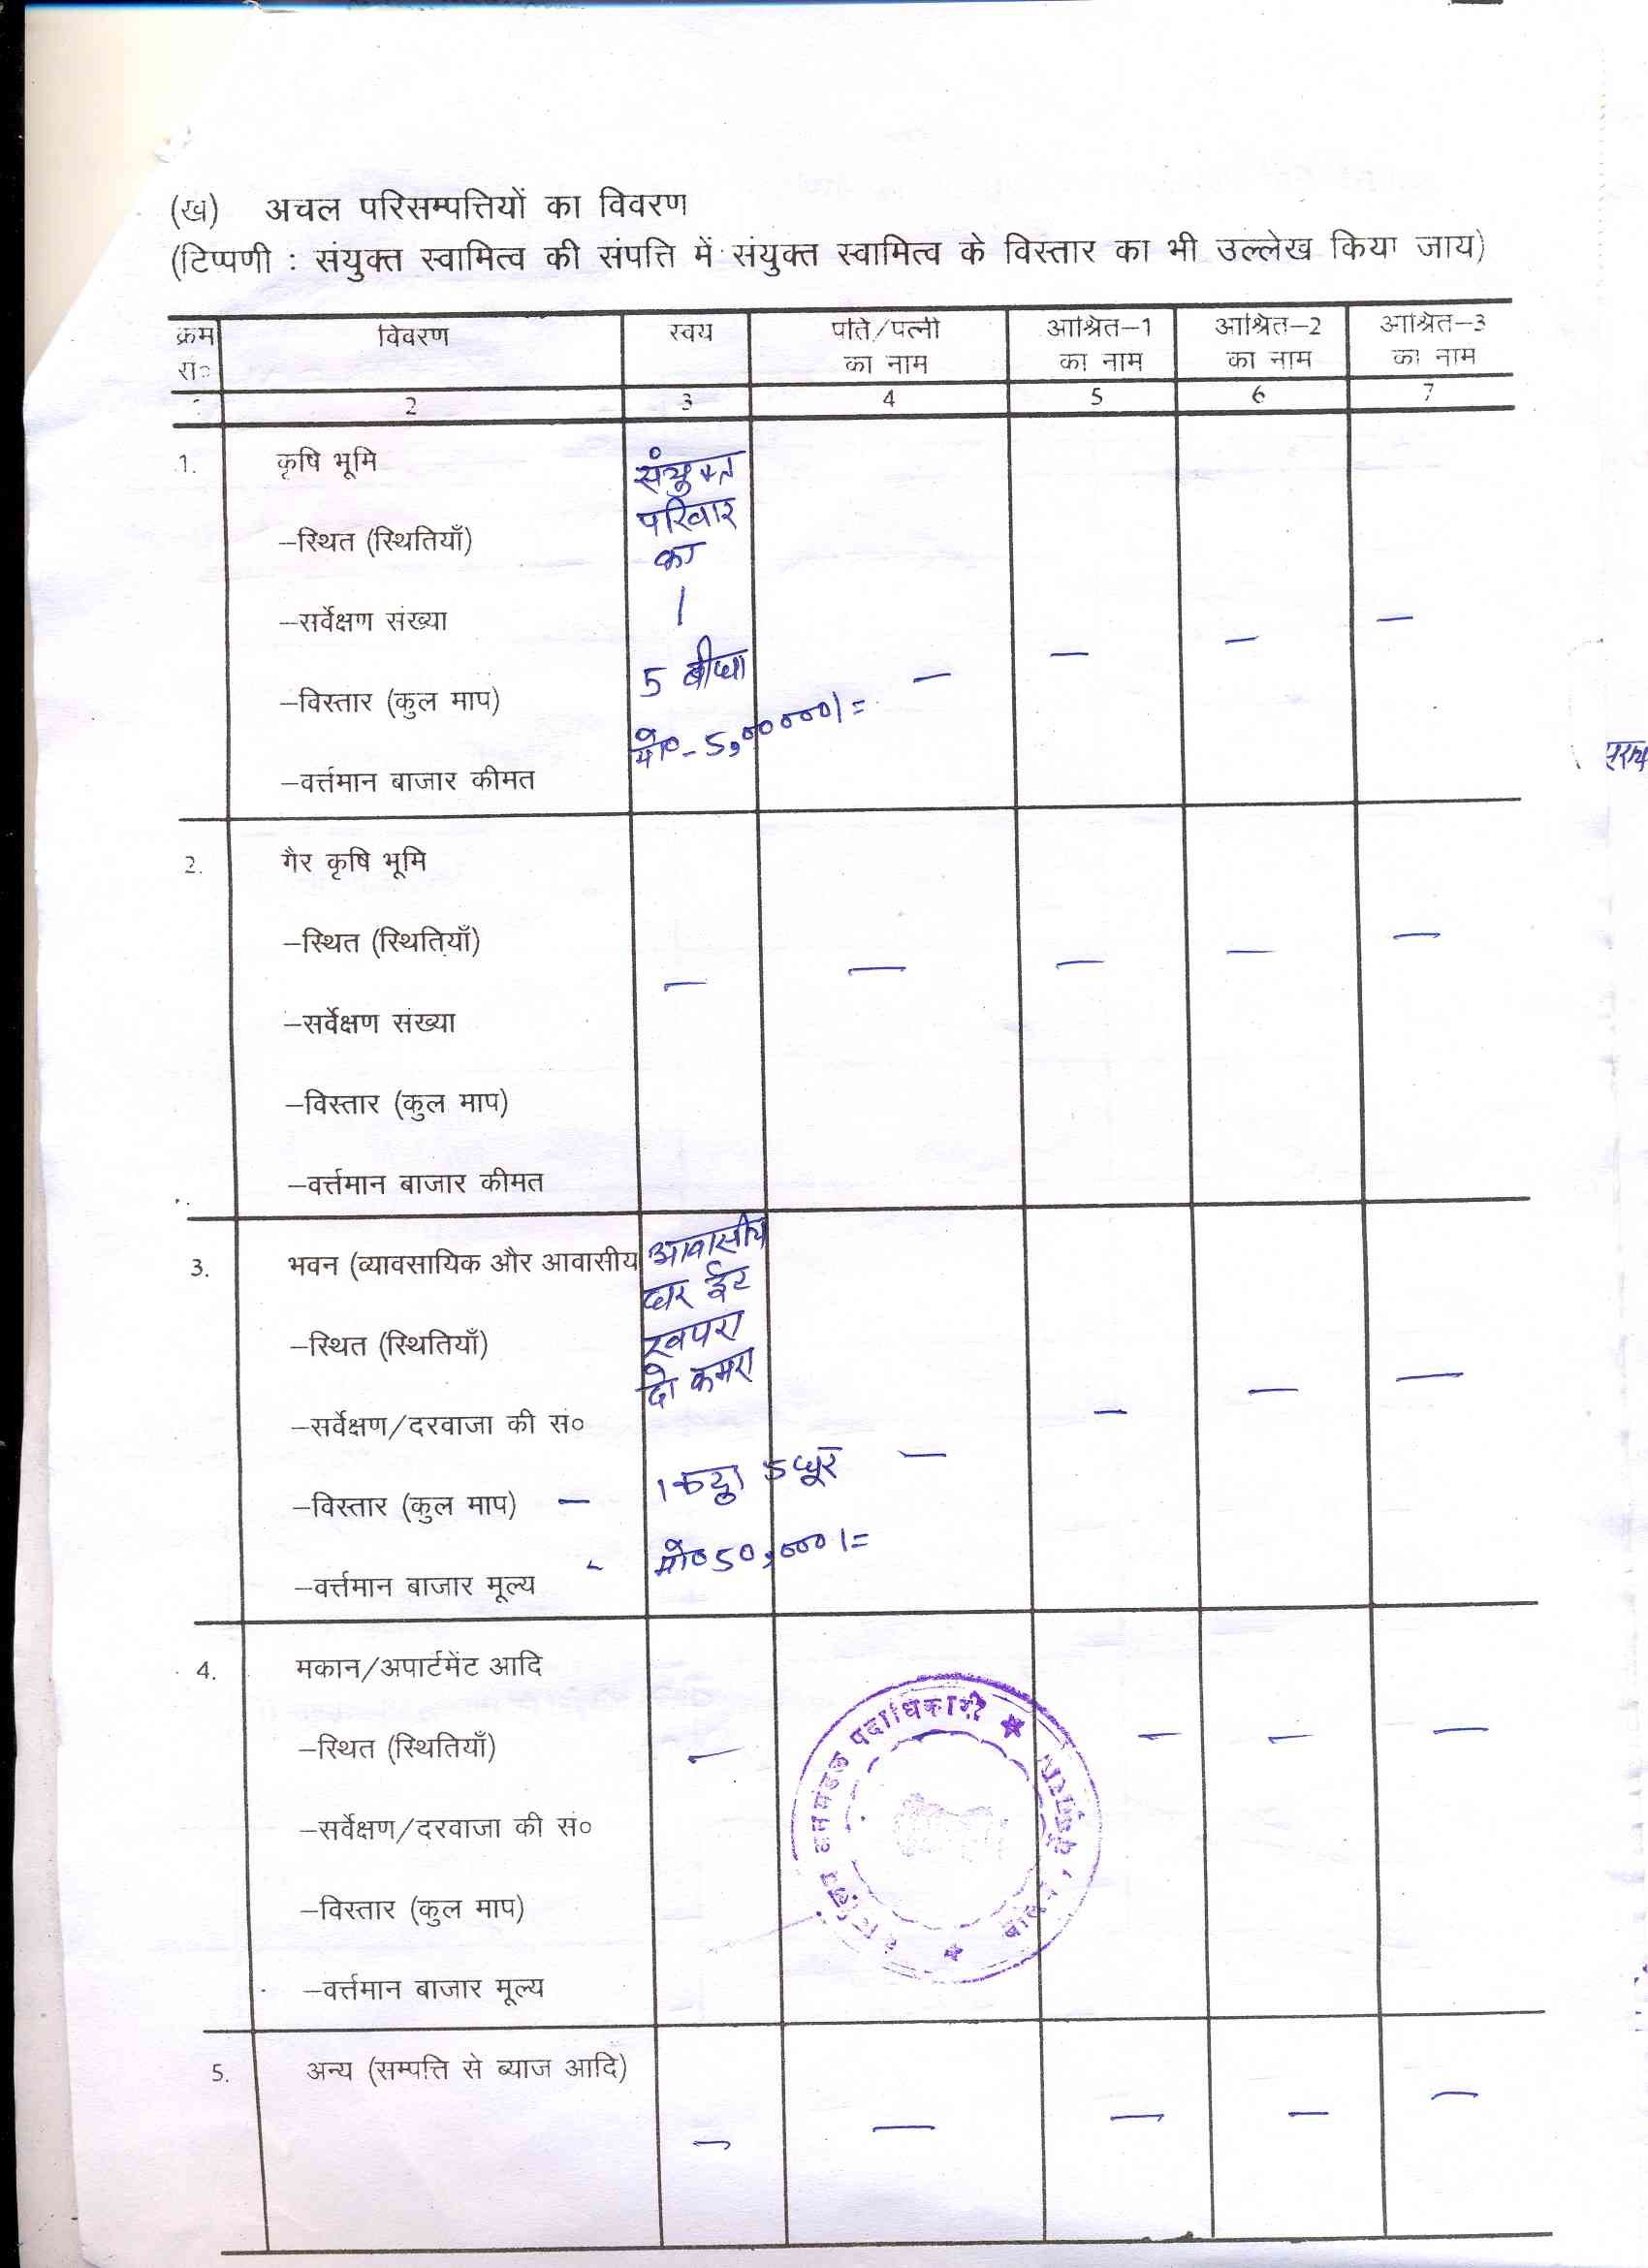 (ख) अचल परिसम्पत्तियों का विवरण
(टिप्पणी : संयुक्त स्वामित्व की संपत्ति में संयुक्त स्वामित्व के विस्तार का भी उल्लेख किया जाय)
क्रम सं० विवरण स्वयं पति/पत्नी का नाम आश्रित–1 का नाम आश्रित–2 का नाम आश्रित–3 का नाम
2 3 4 5 6 7
1. कृषि भूमि संयुक्त
परिवार
–स्थित (स्थितियाँ) का
–सर्वेक्षण संख्या | — — —
–विस्तार (कुल माप) 5 बीघा —
–वर्त्तमान बाजार कीमत मो०– 5,00000/=
2. गैर कृषि भूमि
–स्थित (स्थितियाँ) — — — — —
–सर्वेक्षण संख्या
–विस्तार (कुल माप)
–वर्त्तमान बाजार कीमत
3. भवन (व्यावसायिक और आवासीय आवासीय
घर ईट
–स्थित (स्थितियाँ) खपरा
दो कमरा — —
–सर्वेक्षण/दरवाजा की सं० —
–विस्तार (कुल माप) — 1 कट्ठा 5 धूर —
–वर्त्तमान बाजार मूल्य - मो० 50,000/=
4. मकान/अपार्टमेंट आदि
–स्थित (स्थितियाँ) — — — —
–सर्वेक्षण/दरवाजा की सं०
–विस्तार (कुल माप)
–वर्त्तमान बाजार मूल्य
पदाधिकारी ★
5. अन्य (सम्पत्ति से ब्याज आदि)
— — — — —